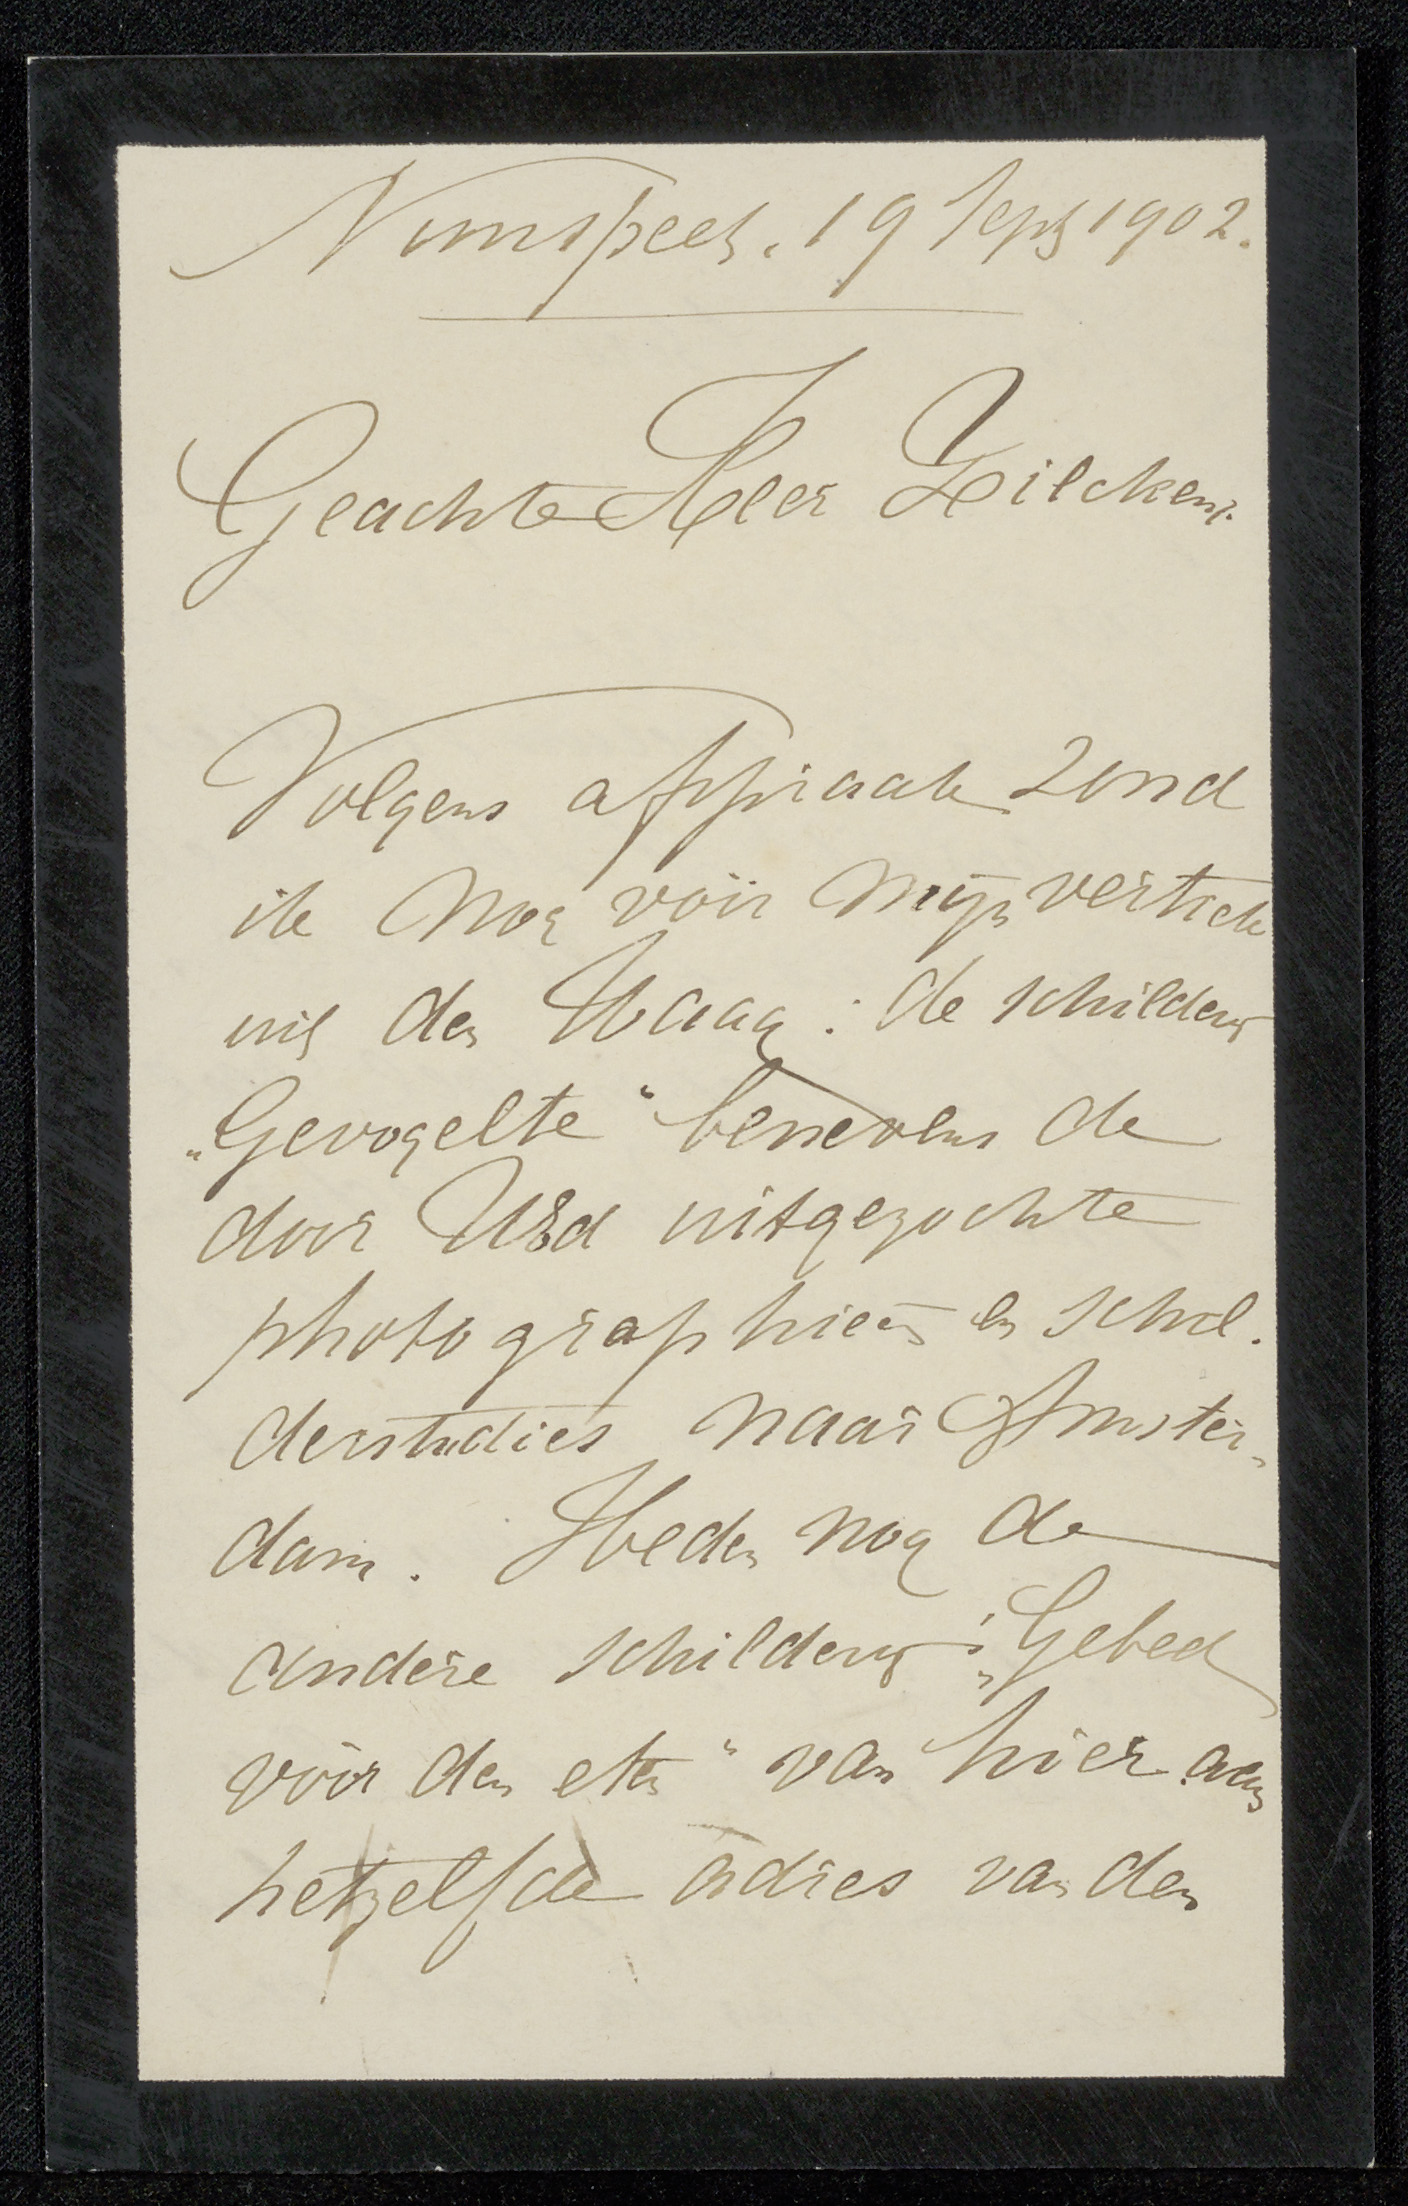 Nunspeet, 19 Sept 1902.
Geachte Heer Zilcken,
Volgens afspraak zond
ik nog vóór mijn vertrek
uit den Haag: de schilderij
„Gevogelte" benevens de
door UEd uitgezochte
photographieën en schil-
derstudies naar Amster-
dam. Heden nog de
andere schilderij: „Gebed
vóór den eten" van hier aan
hetzelfde adres van den